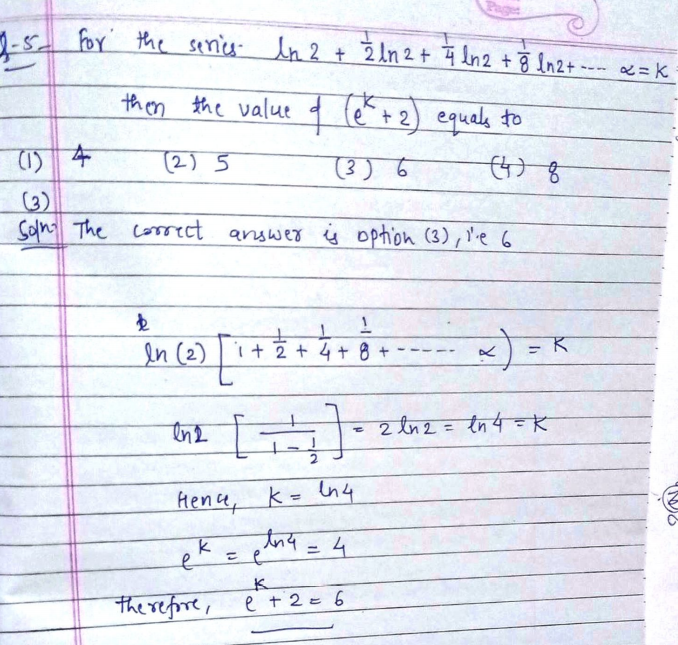 Page:
Q-5- For the series- ln 2 + 1/2 ln 2 + 1/4 ln 2 + 1/8 ln 2 + ---- ∝ = K
then the value of (e^K + 2) equals to
(1) 4 (2) 5 (3) 6 (4) 8
(3)
Soln: The correct answer is option (3), i.e 6
ln (2) [ 1 + 1/2 + 1/4 + 1/8 + ------ ∝ ) = K
ln 2 [ 1/(1 - 1/2) ] = 2 ln 2 = ln 4 = K
Hence, K = ln 4
e^K = e^ln 4 = 4
therefore, e^K + 2 = 6